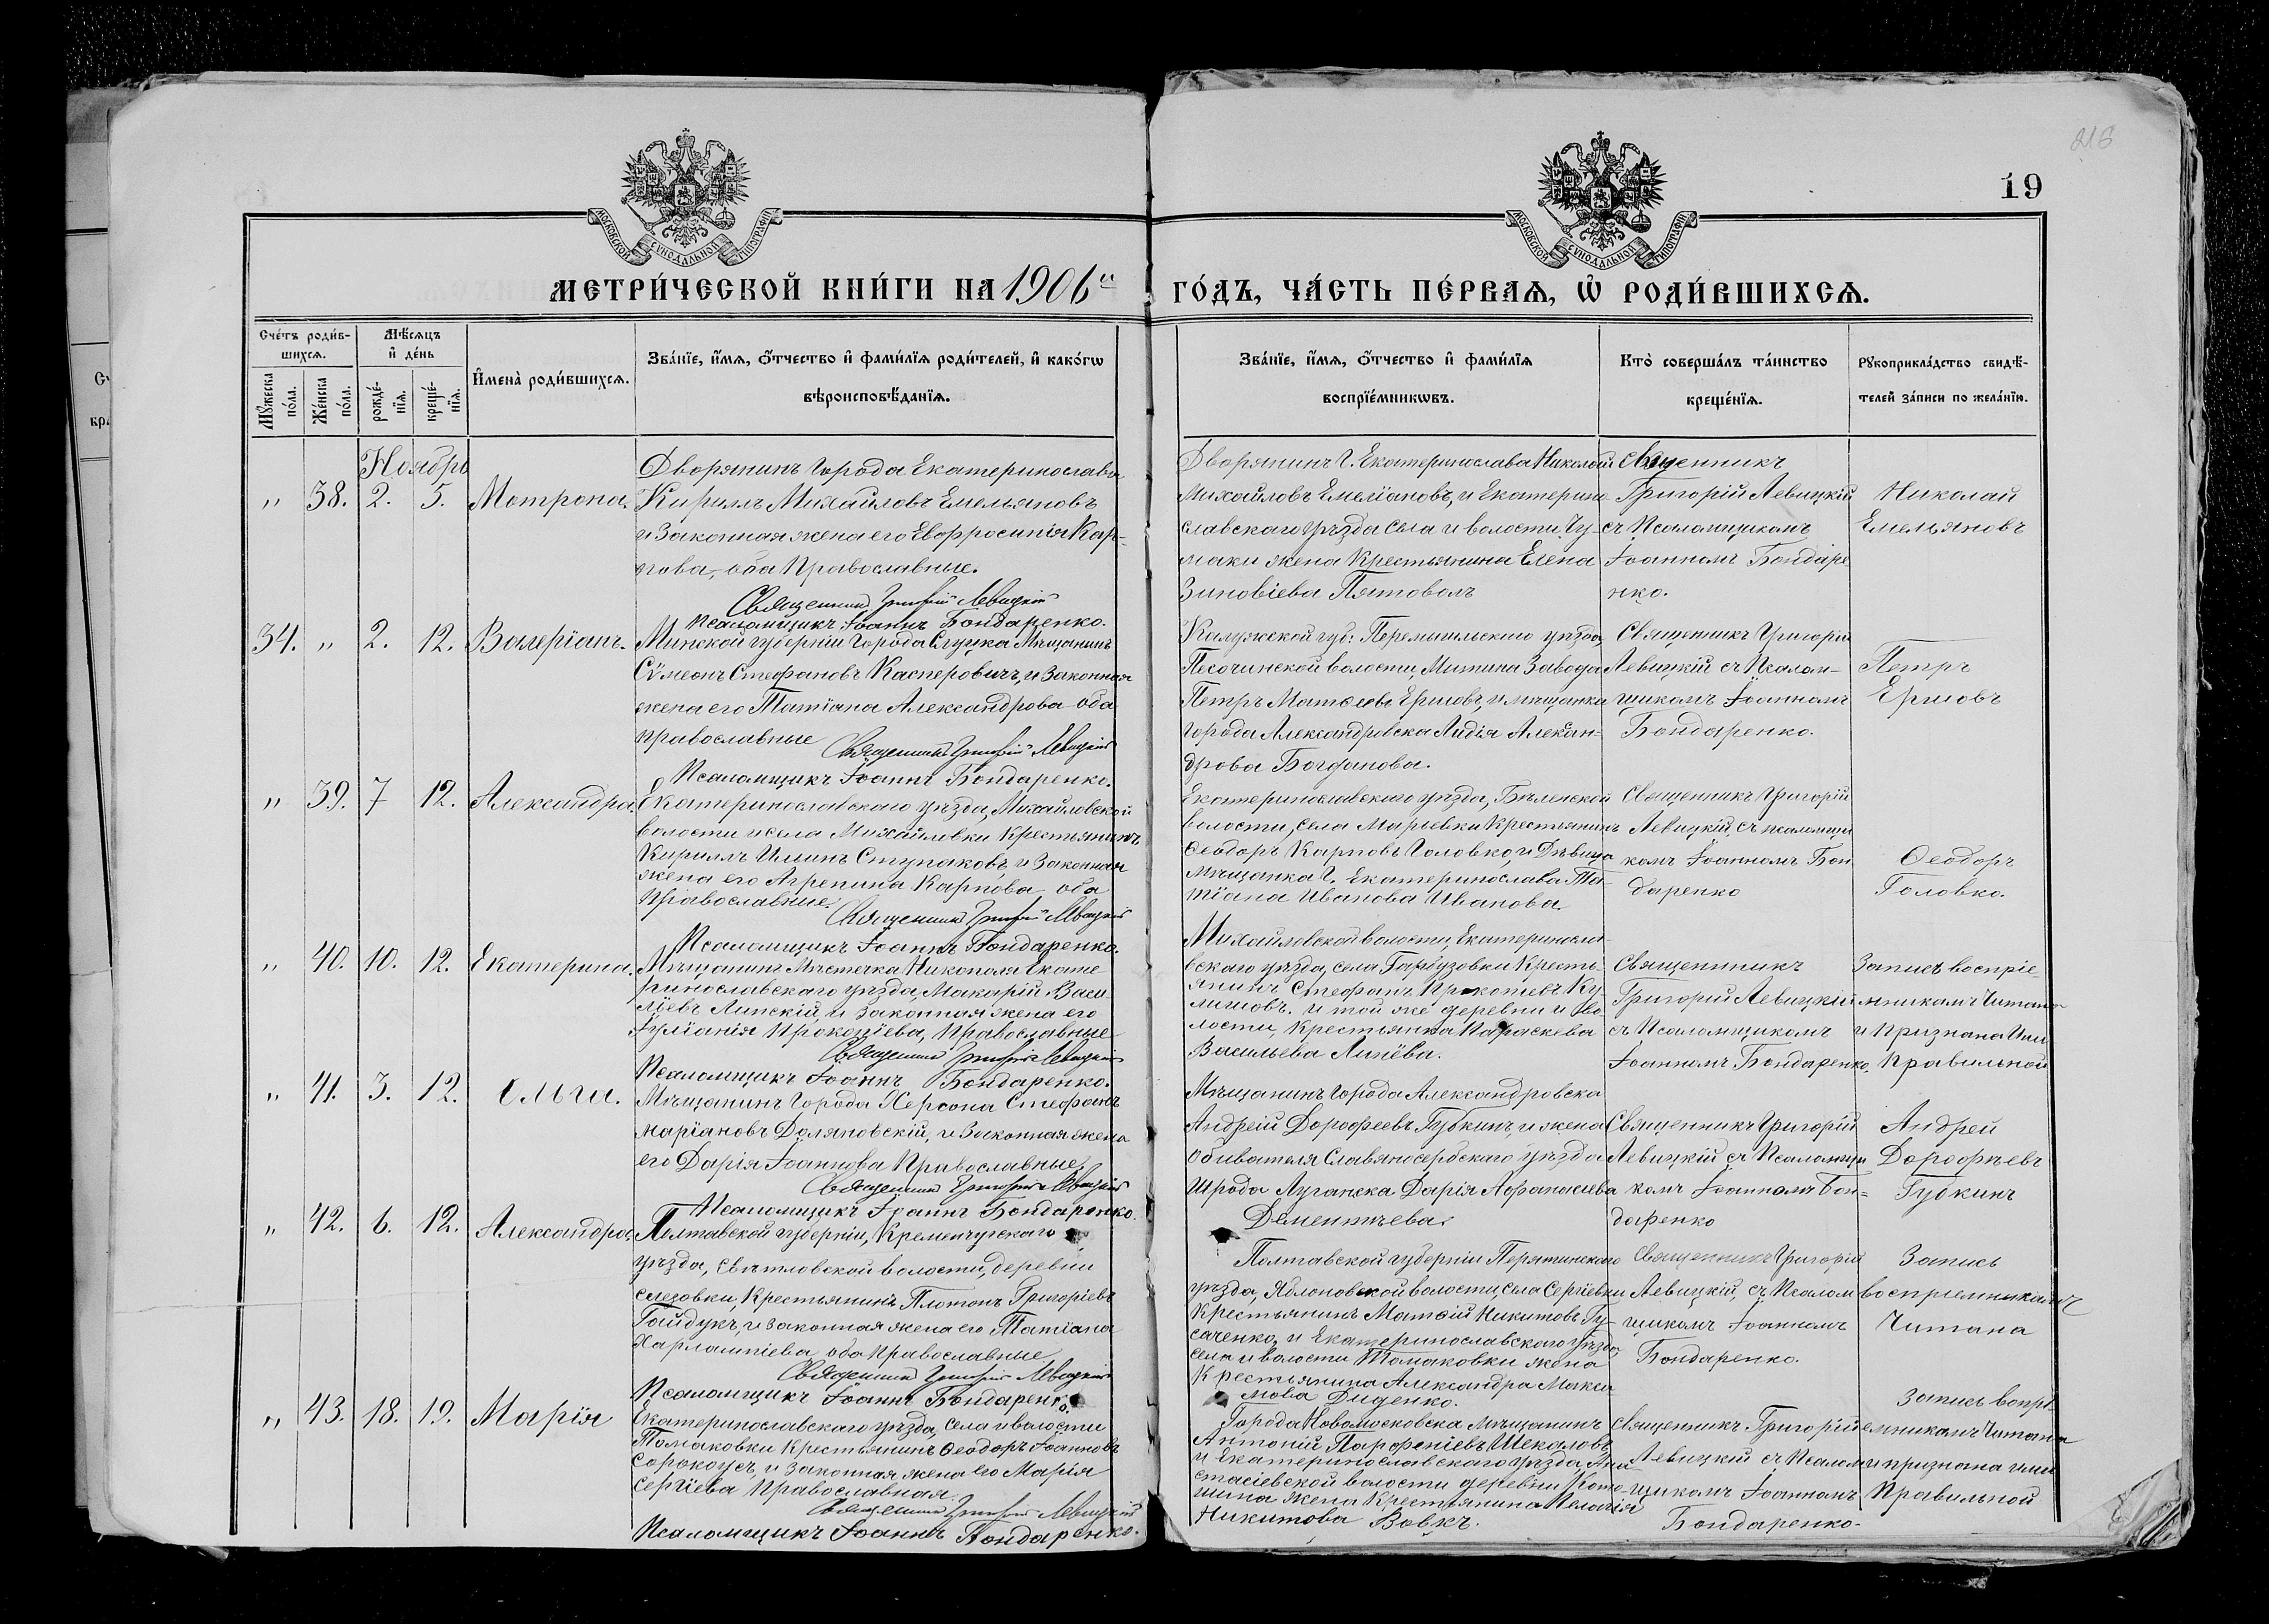 218
19
МОСКОВСКОЙ СѴНОДАЛЬНОЙ ТИПОГРАФІИ
МОСКОВСКОЙ СѴНОДАЛЬНОЙ ТИПОГРАФІИ
МЕТРИ́ЧЕСКОЙ КНИ́ГИ НА 1906й ГО́ДЪ, ЧА́СТЬ ПЕ́РВАѦ, Ѡ҆ РОДИ́ВШИХСѦ.
Сче́тъ роди́в-
шихсѧ.
Мꙋ́жеска по́ла.
Же́нска по́ла.
Мѣ́сѧцъ
и҆ де́нь
рожде́-
нїѧ.
креще́-
нїѧ.
И҆мена̀ роди́вшихсѧ.
Зва́нїе, и҆́мѧ, ѻ҆́тчество и҆ фами́лїѧ роди́телей, и҆ како́гѡ
вѣроисповѣ́данїѧ.
Зва́нїе, и҆́мѧ, ѻ҆́тчество и҆ фами́лїѧ
воспрїе́мникѡвъ.
Кто̀ соверша́лъ та́инство
креще́нїѧ.
Рꙋкоприкла́дство свидѣ́-
телей за́писи по жела́нїю.
Ноябрь
,, 38. 2. 5. Мотрона.
Дворянинъ города Екатеринослава
Кириллъ Михайловъ Емельяновъ
и законная жена его Евфросинія Кар-
пова, оба Православные.
Священникъ Григорій Левицкій
Псаломщикъ Іоаннъ Бондаренко.
Дворянинъ г. Екатеринослава Николай
Михайловъ Емеліановъ, и Екатерино-
славскаго уѣзда села и волости Чу-
маки жена крестьянина Елена
Зиновіева Пятоволъ
Священникъ
Григорій Левицкій
съ Псаломщикомъ
Іоанномъ Бондаре
нко.
Николай
Емельяновъ
34. ,, 2. 12. Валеріанъ.
Минской губерніи города Слуцка Мѣщанинъ
Сѵмеонъ Стефановъ Касперовичъ, и законная
жена его Татіана Александрова оба
православные
Священникъ Григорій Левицкій
Псаломщикъ Іоаннъ Бондаренко.
Калужской губ: Перемышльскаго уѣзда,
Песочинской волости, Митина Завода
Петръ Матѳеевъ Ершовъ, и мѣщанка
города Александровска Лидія Алексан-
дрова Богданова.
Священникъ Григорій
Левицкій съ Псалом-
щикомъ Іоанномъ
Бондаренко.
Петръ
Ершовъ
,, 39. 7 12. Александра.
Екатеринославскаго уѣзда, Михайловской
волости и села Михайловки крестьянинъ
Кириллъ Ступаковъ, и законная
жена его Агрепина Карпова оба
Православные
Священникъ Григорій Левицкій
Псаломщикъ Іоаннъ Бондаренко.
Екатеринославскаго уѣзда, Бѣленской
волости, села Марьевки крестьянинъ
Ѳеодоръ Карповъ Головко, и дѣвица
мѣщанка г. Екатеринослава Та-
тіана Иванова Иванова.
Священникъ Григорій
Левицкій, съ псаломщи
комъ Іоанномъ Бон
даренко
Ѳеодоръ
Головко.
,, 40. 10. 12. Екатерина.
Мѣщанинъ Мѣстечка Никополя Екате
ринославскаго уѣзда, Макарій Васи
ліевъ Липскій, и законная жена его
Іуліанія Прокопіева, Православные
Священникъ Григорій Левицкій
Псаломщикъ Іоаннъ Бондаренко.
Михайловской волости, Екатериносла-
вскаго уѣзда, села Гарбузовки кресть-
янинъ Стефанъ Ку-
лишовъ. и той же деревни и во
лости, крестьянка Параскева
Васильева
Священникъ
Григорій Левицкій
съ Псаломщикомъ
Іоанномъ Бондаренко.
Запись воспріе-
мникамъ читана
и признана ими
правильной
,, 41. 3. 12. Ольга.
Мѣщанинъ города Херсона Стефанъ
Маріановъ Доляновскій, и законная жена
его Дарія Іоаннова Православные
Священникъ Григорій Левицкій
Псаломщикъ Іоаннъ Бондаренко.
Мѣщанинъ города Александровска
Андрей Дорофеевъ Губкинъ, и жена
обывателя Славяносербскаго уѣзда
города Луганска Дарія Афанасіева
Дементьева.
Священникъ Григорій
Левицкій съ Псаломщи
комъ Іоанномъ Бон-
даренко
Андрей
Дорофѣевъ
Губкинъ
,, 42. 6. 12. Александра.
Полтавской губерніи, Кременчугскаго
уѣзда, Свѣтловской волости, деревни
крестьянинъ Платонъ Григоріевъ
Гайдукъ, и законная жена его Татіана
Харлампіева оба православные
Священникъ Григорій Левицкій
Псаломщикъ Іоаннъ Бондаренко.
Полтавской губерніи Пирятинскаго
уѣзда, Яблоновской волости, села Сергіевки
крестьянинъ Матѳій Никитовъ Гу-
саченко, и Екатеринославскаго уѣзда
села и волости Томаковки жена
крестьянина Александра Макси
мова Диденко.
Священникъ Григорій
Левицкій, съ Псалом
щикомъ Іоанномъ
Бондаренко.
Запись
воспріемникамъ
читана
,, 43. 18. 19. Марія
Екатеринославскаго уѣзда, села и волости
Томаковки крестьянинъ Ѳеодоръ Іоанновъ
Сорокоусъ, и законная жена его Марія
Сергіева Православная
Священникъ Григорій Левицкій
Псаломщикъ Іоаннъ Бондаренко.
Города Новомосковска мѣщанинъ
Антоній Парфеніевъ Шекаловъ
и Екатеринославскаго уѣзда, Ана
стасіевской волости деревни Кото-
шина жена крестьянина Пелагія
Никитова Вовкъ.
Священникъ Григорій
Левицкій съ Псалом
щикомъ Іоанномъ
Бондаренко.
Запись воспрі-
емникамъ читана
и признана ими
Правильной